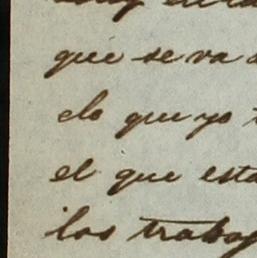 que se va
elo que yo
el que esta
los trabaj